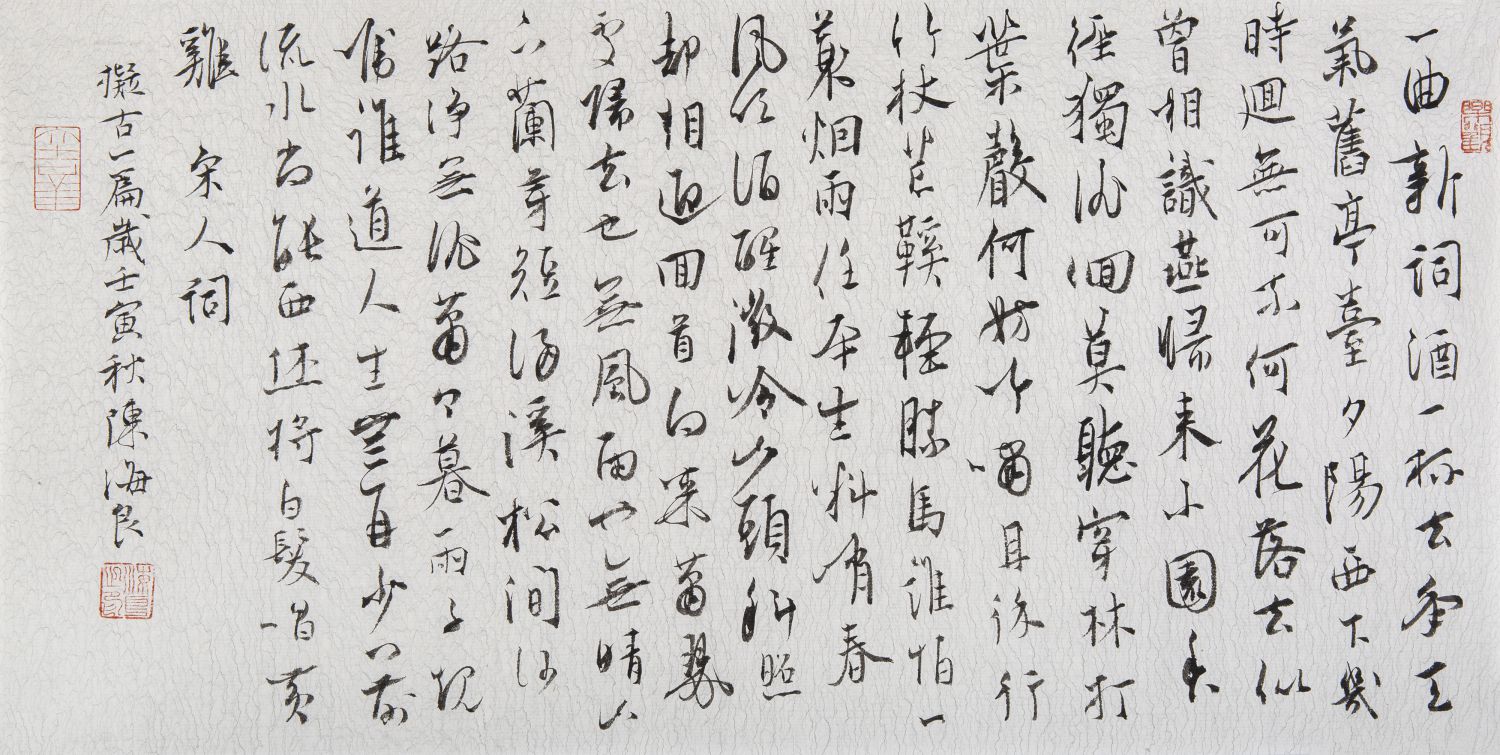 一曲新詞酒一杯去年天
氣舊亭臺夕陽西下幾
時迴無可奈何花落去似
曾相識燕歸來小園香
徑獨徘徊莫聽穿林打
葉聲何妨吟嘯且徐行
竹杖芒鞵輕勝馬誰怕一
蓑烟雨任平生料峭春
風吹酒醒微冷山頭斜照
却相迎回首向來蕭瑟
處歸去也無風雨也無晴山
下蘭芽短浸溪松間沙
路淨無泥蕭々暮雨子規
啼誰道人生無再少門前
流水尚能西休將白髮唱黄
雞 宋人詞
擬古一篇歲壬寅秋陳海良